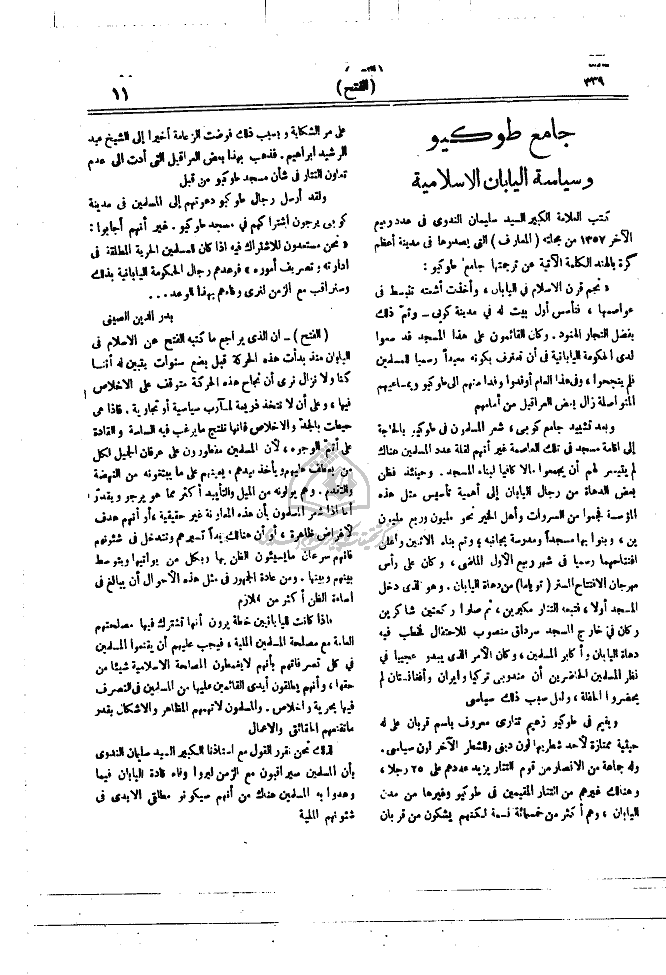 ٣٣٩
(الفتح)
١١
جامع طوكيو
وسياسة اليابان الاسلامية
كتب العلامة الكبير السيد سليمان الندوى فى عدد ربيع
الآخر ١٣٥٧ من مجلته (المعارف) التى يصدرها فى مدينة أعظم
كرة بالهند الكلمة الآتية عن ترجمتها جامع طوكيو:
« نجم قرن الاسلام فى اليابان، وأخذت أشعته تنبسط فى
عواصمها، فتأسس أول بيت له فى مدينة كوبى - وتم ذلك
بفضل التجار الهنود. وكان القائمون على هذا المسجد قد سعوا
لدى الحكومة اليابانية فى أن تعترف بكونه معبداً رسميا للمسلمين
فلم ينجحوا، وفى هذا العام أوفدوا وفدا منهم الى طوكيو وبمساعيهم
المتواصلة زال بعض العراقيل من أمامهم
وبعد تشييد جامع كوبى، شعر المسلمون فى طوكيو بالحاجة
الى اقامة مسجد فى تلك العاصمة غير أنهم لقلة عدد المسلمين هناك
لم يتيسر لهم أن يجمعوا المال كافيا لبناء المسجد. وحينئذ فطن
بعض الدهاة من رجال اليابان إلى أهمية تأسيس مثل هذه
المؤسسة فجمعوا من السروات وأهل الخير نحو مليون وربع مليون
ين، وبنوا بها مسجداً ومدرسة بجانبه، وتم بناء الاثنين وأعلن
افتتاحهما رسميا فى شهر ربيع الأول الماضى، وكان على رأس
مهرجان الافتتاح المستر (توياما) من دهاة اليابان. وهو الذى دخل
المسجد أولا، فتبعه التتار مكبرين، ثم صلوا ركعتين شاكرين
وكان فى خارج المسجد سرادق منصوب للاحتفال فخطب فيه
دهاة اليابان وأكابر المسلمين، وكان الأمر الذى يبدو عجيبا فى
نظر المسلمين الحاضرين أن مندوبى تركيا وايران وأفغانستان لم
يحضروا الحفلة، ولعل سبب ذلك سياسى
ويقيم فى طوكيو زعيم تتارى معروف باسم قربان على له
حيثية ممتازة لأحد شطريها لون دينى وللشطر الآخر لون سياسى.
وله جماعة من الانصار من قوم التتار يزيد عددهم على ٢٥ رجلا،
وهنالك غيرهم من التتار المقيمين فى طوكيو وغيرها من مدن
اليابان، وهم أكثر من خمسمائة نسمة لكنهم يشكون من قربان
على مر الشكاية وبسبب ذلك فوضت الزعامة أخيرا إلى الشيخ عبد
الرشيد ابراهيم. فذهب بهذا بعض العراقيل التى أدت الى عدم
تعاون التتار فى شأن مسجد طوكيو من قبل
ولقد أرسل رجال طوكيو دعوتهم إلى المسلمين فى مدينة
كوبى يرجون اشتراكهم فى مسجد طوكيو. غير أنهم أجابوا:
« نحن مستعدون للاشتراك فيه اذا كان للمسلمين الحرية المطلقة فى
ادارته وتصريف أموره » فوعدهم رجال الحكومة اليابانية بذلك
وسنراقب مع الزمن لنرى وفاءهم بهذا الوعد...
بدر الدين الصينى
(الفتح) - ان الذى يراجع ما كتبه الفتح عن الاسلام فى
اليابان منذ بدأت هذه الحركة قبل بضع سنوات يتبين له أننا
كنا ولا نزال نرى أن نجاح هذه الحركة متوقف على الاخلاص
فيها، وعلى أن لا تتخذ ذريعة لمآرب سياسية أو تجارية. فاذا هى
حيطت بالجد والاخلاص فانها تنتج ما يرغب فيه الساسة والقادة
على أتم الوجوه، لأن المسلمين مفطورون على عرفان الجميل لكل
من يعطف عليهم ويأخذ بيدهم، ويعينهم على ما يبتغونه من النهضة
والتقدم. وهم يولونه من الميل والتأييد أكثر مما هو يرجو ويقدر
أما اذا شعر المسلمون بأن هذه المعاونة غير حقيقية، أو أنهم هدف
لأغراض ظاهرة، أو أن هنالك يداً تسيرهم وتتدخل فى شئونهم
فانهم سرعان ما يسيئون الظن بها وبكل من يواليها ويتوسط
بينهم وبينها. ومن عادة الجمهور فى مثل هذه الأحوال أن يبالغ فى
اساءة الظن أكثر من اللازم
فاذا كانت لليابانيين خطة يرون أنها تشترك فيها مصلحتهم
العامة مع مصلحة المسلمين الملية، فيجب عليهم أن يقنعوا المسلمين
فى كل تصرفاتهم بأنهم لا يغمطون المصلحة الاسلامية شيئا من
حقها، وأنهم يطلقون أيدى القائمين عليها من المسلمين فى التصرف
فيها بحرية واخلاص. والمسلمون لا تهمهم المظاهر والاشكال بقدر
ما تهمهم الحقائق والاعمال
لذلك نحن نقرر القول مع استاذنا الكبير السيد سليمان الندوى
بأن المسلمين سيراقبون مع الزمن ليروا وفاء قادة اليابان فيما
وعدوا به المسلمين هناك من أنهم سيكونون مطلقى الايدى فى
شئونهم الملية